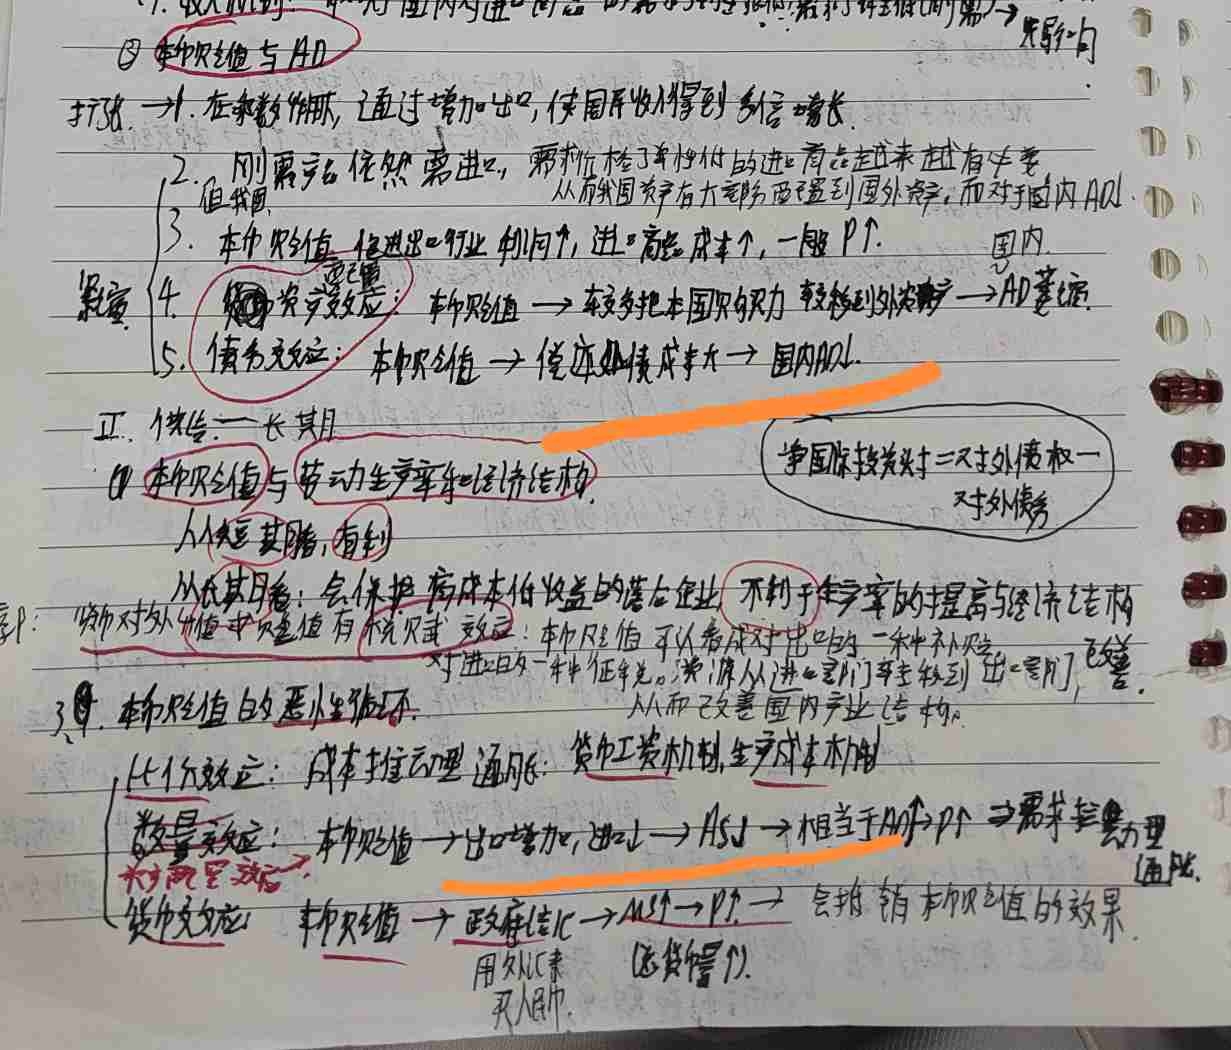 ② 本币贬值与AD
扩张 →1. 在乘数作用下, 通过增加出口, 使国民收入得到多倍增长.
2. 刚需产品依然需进口, 需求价格弹性低的进口商品越来越有必要
但我国 从而我国资产有大部分配置到国外资产, 而对于国内AD↓.
3. 本币贬值 促进出口行业利润↑, 进口商品成本↑, 一般P↑.
国内
配置
紧缩 4. 资产效应: 本币贬值 → 较多把本国购买力转移到外资产 → AD萎缩.
5. 债务效应: 本币贬值 → 偿还外债成本大 → 国内AD↓.
II. 供给 — 长期
净国际投资头寸=对外债权-对外债务
① 本币贬值与劳动生产率和经济结构.
从短期看, 有利
从长期看: 会保护高成本低收益的落后企业, 不利于生产率的提高与经济结构改善.
货币对外升值或贬值有税赋效应: 本币贬值可以看成对出口的一种补贴
对进口的一种征税。资源从进口部门转移到出口部门,
从而改善国内产业结构。
3. 本币贬值的恶性循环.
比价效应: 成本推动型通胀: 货币工资机制, 生产成本机制
数量效应: 本币贬值 → 出口增加, 进口↓ → AS↓ → 相当于AD↑→P↑ ⇒ 需求拉动型通胀.
货币效应: 本币贬值 → 政府结汇 → MS↑ → P↑ → 会抵销本币贬值的效果.
用外汇来 (总货币量↑).
买人民币.